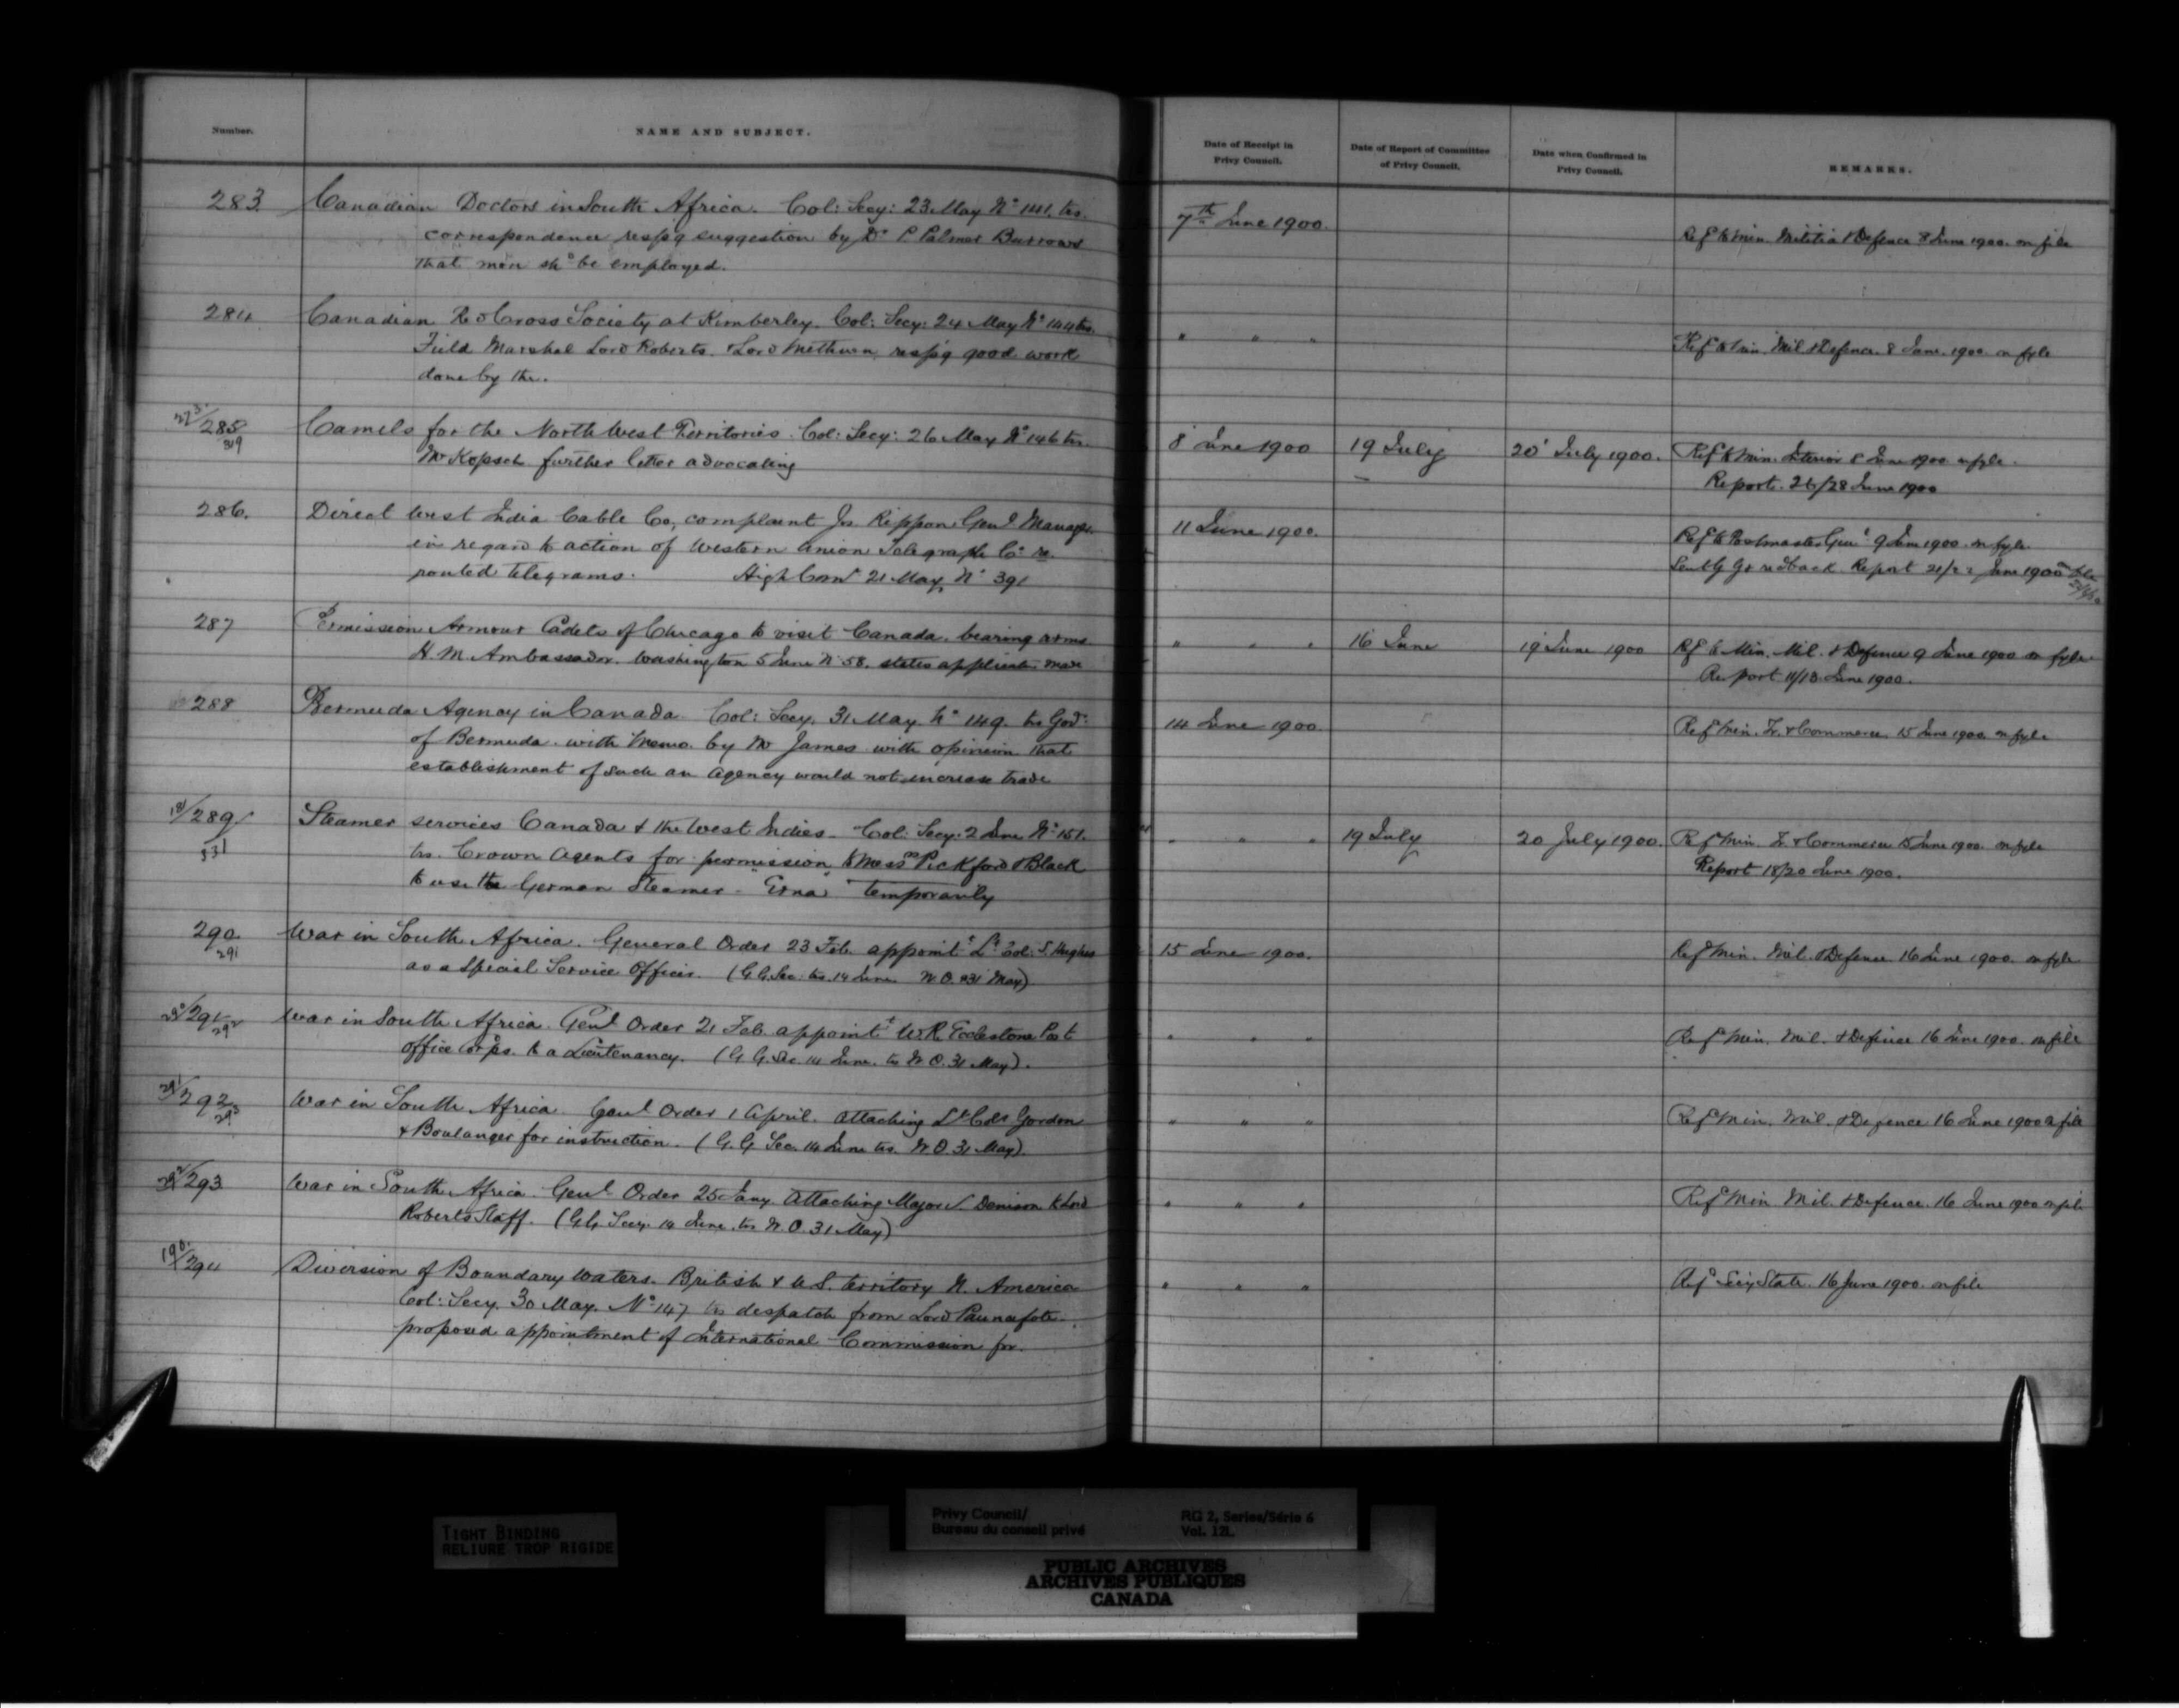 Number.
NAME AND SUBJECT.
Date of Receipt in Privy Council.
Date of Report of Committee of Privy Council.
Date when Confirmed in Privy Council.
REMARKS.
283 Canadian Doctors in South Africa. Col: Secy: 23 May No 141. trs. 7th June 1900.
correspondence resp'g suggestion by Dr P. Palmer Burrows Ref to Min Militia & Defence 8 June 1900. on file
that men shd be employed.
284 Canadian Red Cross Society at Kimberley. Col: Secy: 24 May No 144 trs. " " "
Field Marshal Lord Roberts. & Lord Methuen resp'g good work Ref to Min. Mil & Defence. 8 June. 1900. on fyle
done by the.
273/285 Camels for the North West Territories. Col: Secy: 26 May No 146 trs. 8 June 1900 19 July 20 July 1900. Ref to Min. Interior 8 June 1900. on fyle.
319 Mr Kopsch further letter advocating Report. 26/28 June 1900
286. Direct West India Cable Co, complaint Js. Rippon Genl Manager 11 June 1900.
in regard to action of Western Union Telegraph Co re Ref to Postmaster Genl 9 June 1900. on fyle.
routed telegrams. High Comr 21 May, No 391 Report 21/22 June 1900
287 Permission Armour Cadets of Chicago to visit Canada. bearing arms " " " 16 June 19 June 1900 Ref to Min. Mil. & Defence 9 June 1900 on fyle.
H. M. Ambassador. Washington 5 June No 58. states applicatn made Report 11/13 June 1900.
288 Bermuda Agency in Canada. Col: Secy. 31 May. No 149. trs Govr 14 June 1900. Ref Min. Tr. & Commerce 15 June 1900. on fyle
of Bermuda. with Memo. by Mr James with opinion that
establishment of such an Agency would not increase trade
181/289 Steamer services Canada & the West Indies - Col: Secy: 2 June No 151. " " " 19 July 20 July 1900. Ref Min. Tr. & Commerce 15 June 1900. on fyle
331 trs. Crown Agents for permission to Messrs Pickford & Black Report 18/20 June 1900.
to use the German Steamer - "Erna" temporarily
290 War in South Africa. General Order 23 Feb. appoint't Lt Col: S. Hughes 15 June 1900. Ref Min. Mil. & Defence 16 June 1900. on fyle
291 as a Special Service Officer. (G.G. Sec. trs. 14 June W.O. 31 May)
290/291 War in South Africa. Genl Order 21 Feb. appoint't W. R. Ecclestone Post " " " Ref Min. Mil. & Defence 16 June 1900. on file
292 office Corps. to a Lieutenancy. (G.G. Sec. 14 June. trs W.O. 31 May).
291/292 War in South Africa. Genl Order 1 April. attaching Lt Cols Gordon " " " Ref Min. Mil. & Defence 16 June 1900 on file
293 & Boulanger for instruction. (G.G. Sec. 14 June trs. W.O. 31 May).
292/293 War in South Africa. Genl Order 25 Jany. attaching Major S. Denison to Lord " " " Ref Min. Mil. & Defence. 16 June 1900 on file
Roberts Staff. (G.G. Secy. 14 June. trs W.O. 31 May)
190./294 Diversion of Boundary Waters. British & U.S. territory N. America " " " Ref Secy State. 16 June 1900. on file
Col: Secy. 30 May. No 147 trs despatch from Lord Pauncefote
proposed appointment of International Commission for.
TIGHT BINDING
RELIURE TROP RIGIDE
Privy Council/ RG 2, Series/Série 6
Bureau du conseil privé Vol. 121.
PUBLIC ARCHIVES
ARCHIVES PUBLIQUES
CANADA